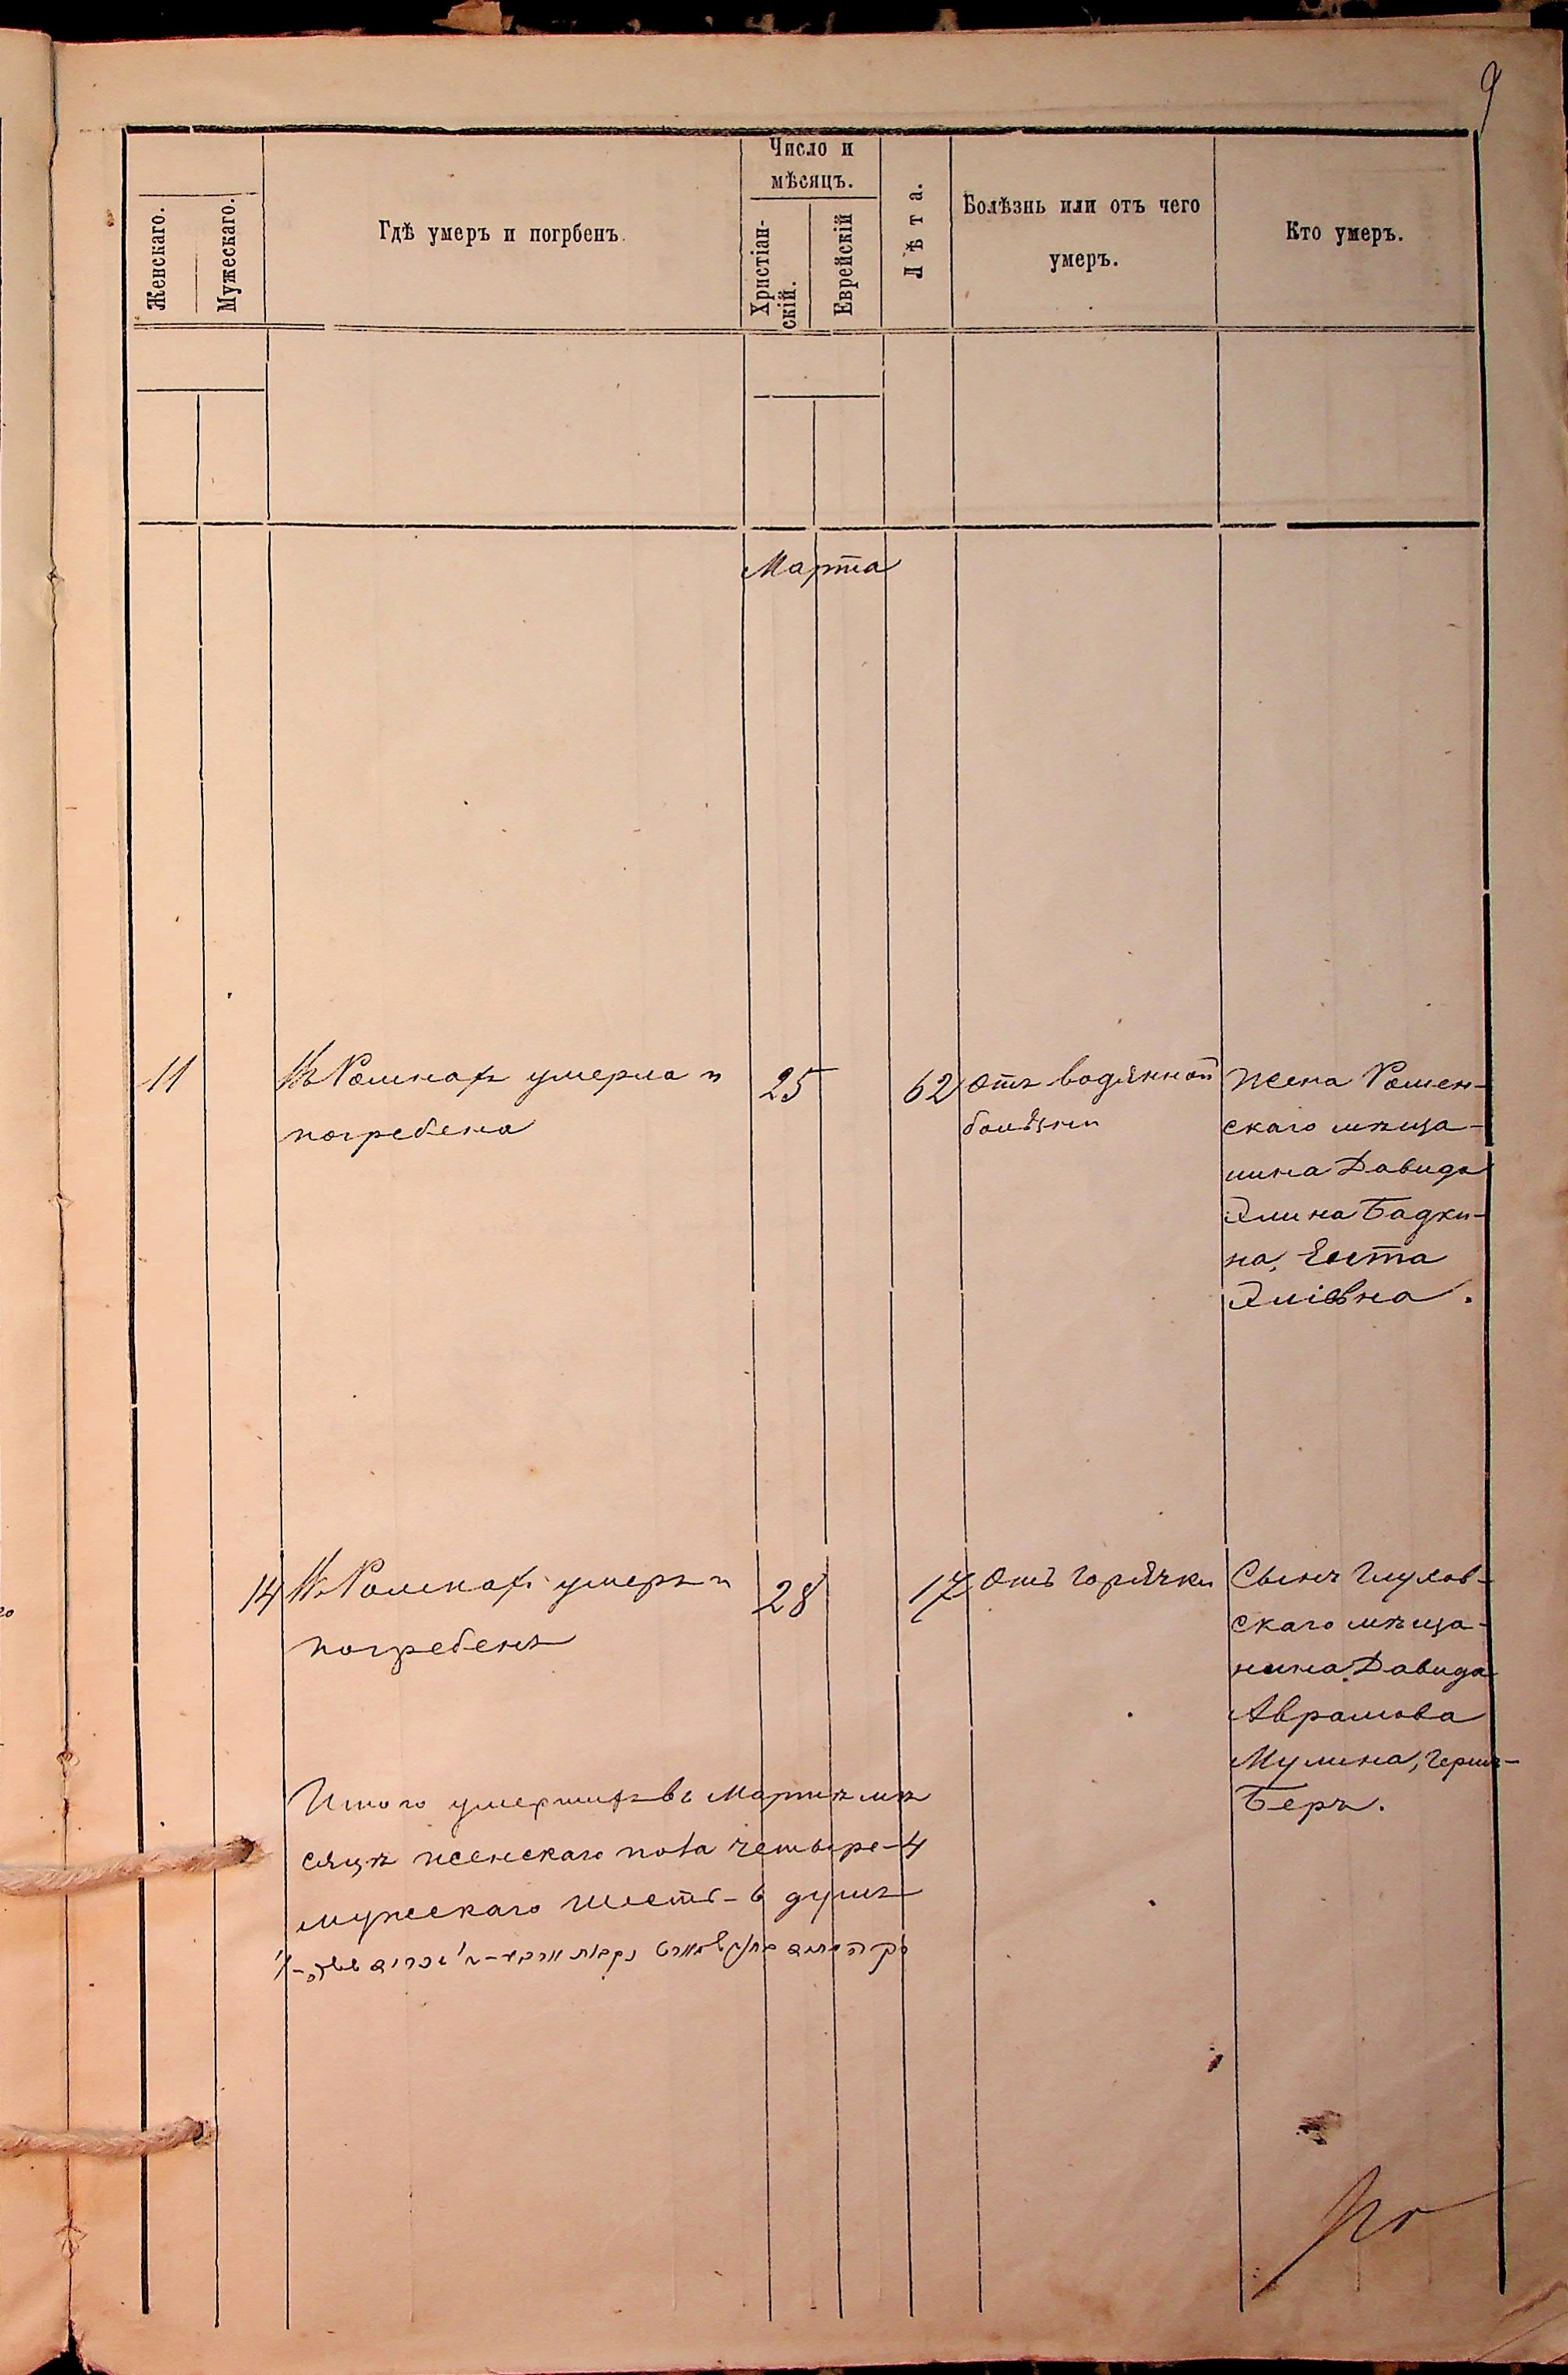 9
Женскаго.
Мужескаго.
Гдѣ умеръ и погрбенъ.
Число и
мѣсяцъ.
Христіан-
скій.
Еврейскій
Лѣта.
Болѣзнь или отъ чего
умеръ.
Кто умеръ.
Марта
11
Въ Ромнахъ умерла и
погребена
25
62
отъ водянной
болѣзни
Жена Ромен-
скаго мѣща-
нина Давида
Элина Бадки-
на,
14
Въ Ромнахъ умеръ и
погребенъ
28
17
отъ горячки
Сынъ Глухов-
скаго мѣща-
нина Давида
Аврамова
Мулина, Герш-
Беръ.
Итого умершихъ въ Мартѣ мѣ
сяцѣ женскаго пола четыре-4
мужескаго шесть-6 душъ